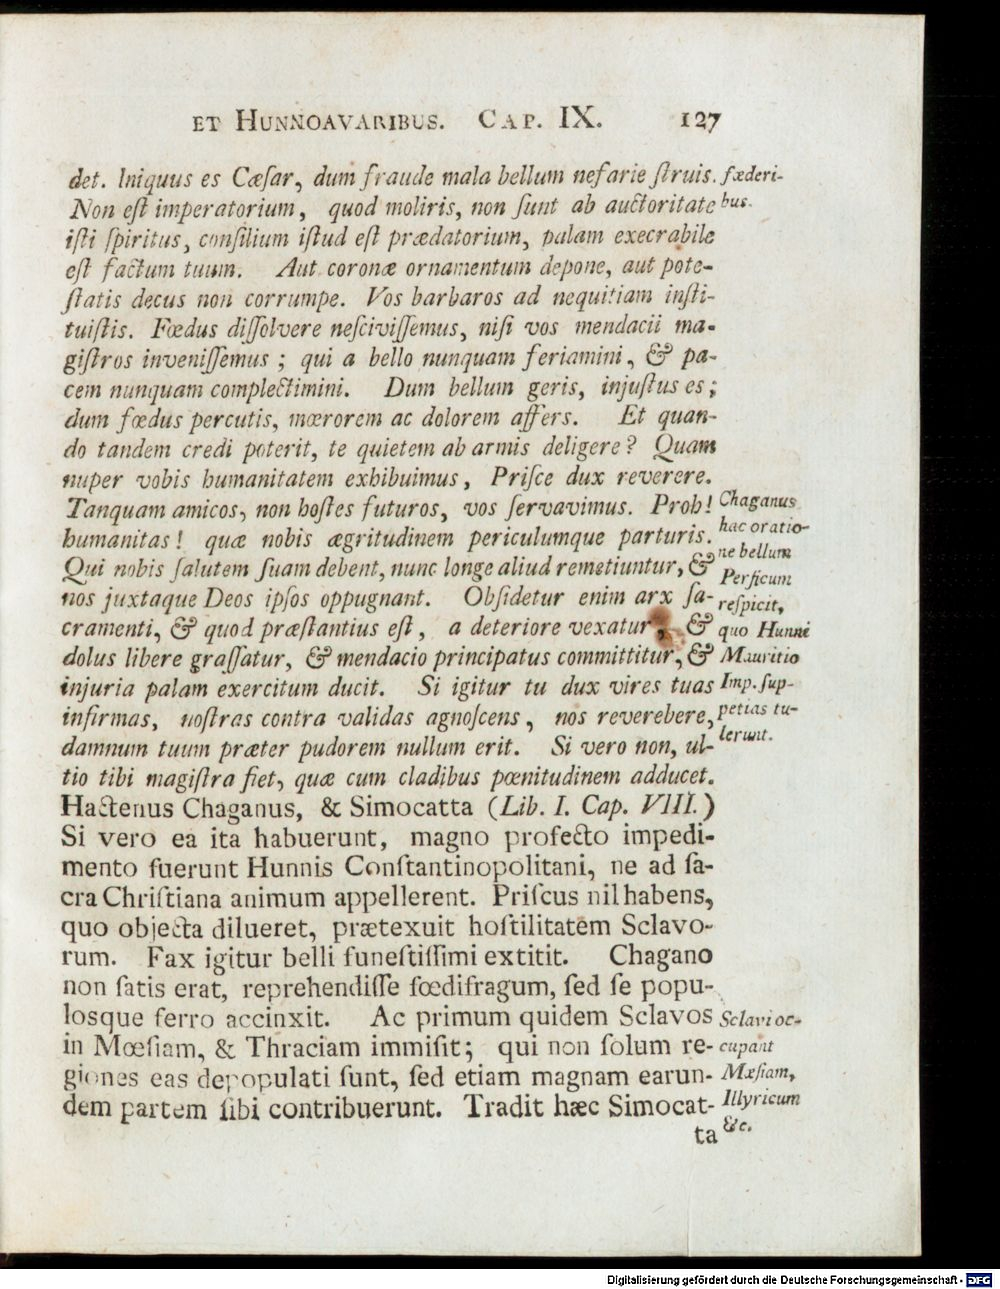 ET HUNNOAVARIBUS. CAP. IX. 127
det. Iniquus es Cæſar, dum fraude mala bellum nefarie ſtruis.
Non eſt imperatorium, quod moliris, non ſunt ab auctoritate
iſti ſpiritus, conſilium iſtud eſt prædatorium, palam execrabile
eſt factum tuum. Aut coronæ ornamentum depone, aut pote-
ſtatis decus non corrumpe. Vos barbaros ad nequitiam inſti-
tuiſtis. Fœdus diſſolvere neſciviſſemus, niſi vos mendacii ma-
giſtros inveniſſemus; qui a bello nunquam feriamini, & pa-
cem nunquam complectimini. Dum bellum geris, injuſtus es;
dum fœdus percutis, mœrorem ac dolorem affers. Et quan-
do tandem credi poterit, te quietem ab armis deligere? Quam
nuper vobis humanitatem exhibuimus, Priſce dux reverere.
Tanquam amicos, non hoſtes futuros, vos ſervavimus. Proh!
humanitas! quæ nobis ægritudinem periculumque parturis.
Qui nobis ſalutem ſuam debent, nunc longe aliud remetiuntur, &
nos juxtaque Deos ipſos oppugnant. Obſidetur enim arx ſa-
cramenti, & quod præſtantius eſt, a deteriore vexatur, &
dolus libere graſſatur, & mendacio principatus committitur, &
injuria palam exercitum ducit. Si igitur tu dux vires tuas
infirmas, noſtras contra validas agnoſcens, nos reverebere,
damnum tuum præter pudorem nullum erit. Si vero non, ul-
tio tibi magiſtra fiet, quæ cum cladibus pœnitudinem adducet.
Hactenus Chaganus, & Simocatta (Lib. I. Cap. VIII.)
Si vero ea ita habuerunt, magno profecto impedi-
mento fuerunt Hunnis Conſtantinopolitani, ne ad ſa-
cra Chriſtiana animum appellerent. Priſcus nil habens,
quo objecta dilueret, prætexuit hoſtilitatem Sclavo-
rum. Fax igitur belli funeſtiſſimi extitit. Chagano
non ſatis erat, reprehendiſſe fœdifragum, ſed ſe popu-
losque ferro accinxit. Ac primum quidem Sclavos
in Mœſiam, & Thraciam immiſit; qui non ſolum re-
giones eas depopulati ſunt, ſed etiam magnam earun-
dem partem ſibi contribuerunt. Tradit hæc Simocat-
ta
fœderi-
bus.
Chaganus
hac oratio-
ne bellum
Perſicum
reſpicit,
quo Hunni
Mauritio
Imp. ſup-
petias tu-
lerunt.
Sclavi oc-
cupant
Mæſiam,
Illyricum
&c.
Digitalisierung gefördert durch die Deutsche Forschungsgemeinschaft - DFG